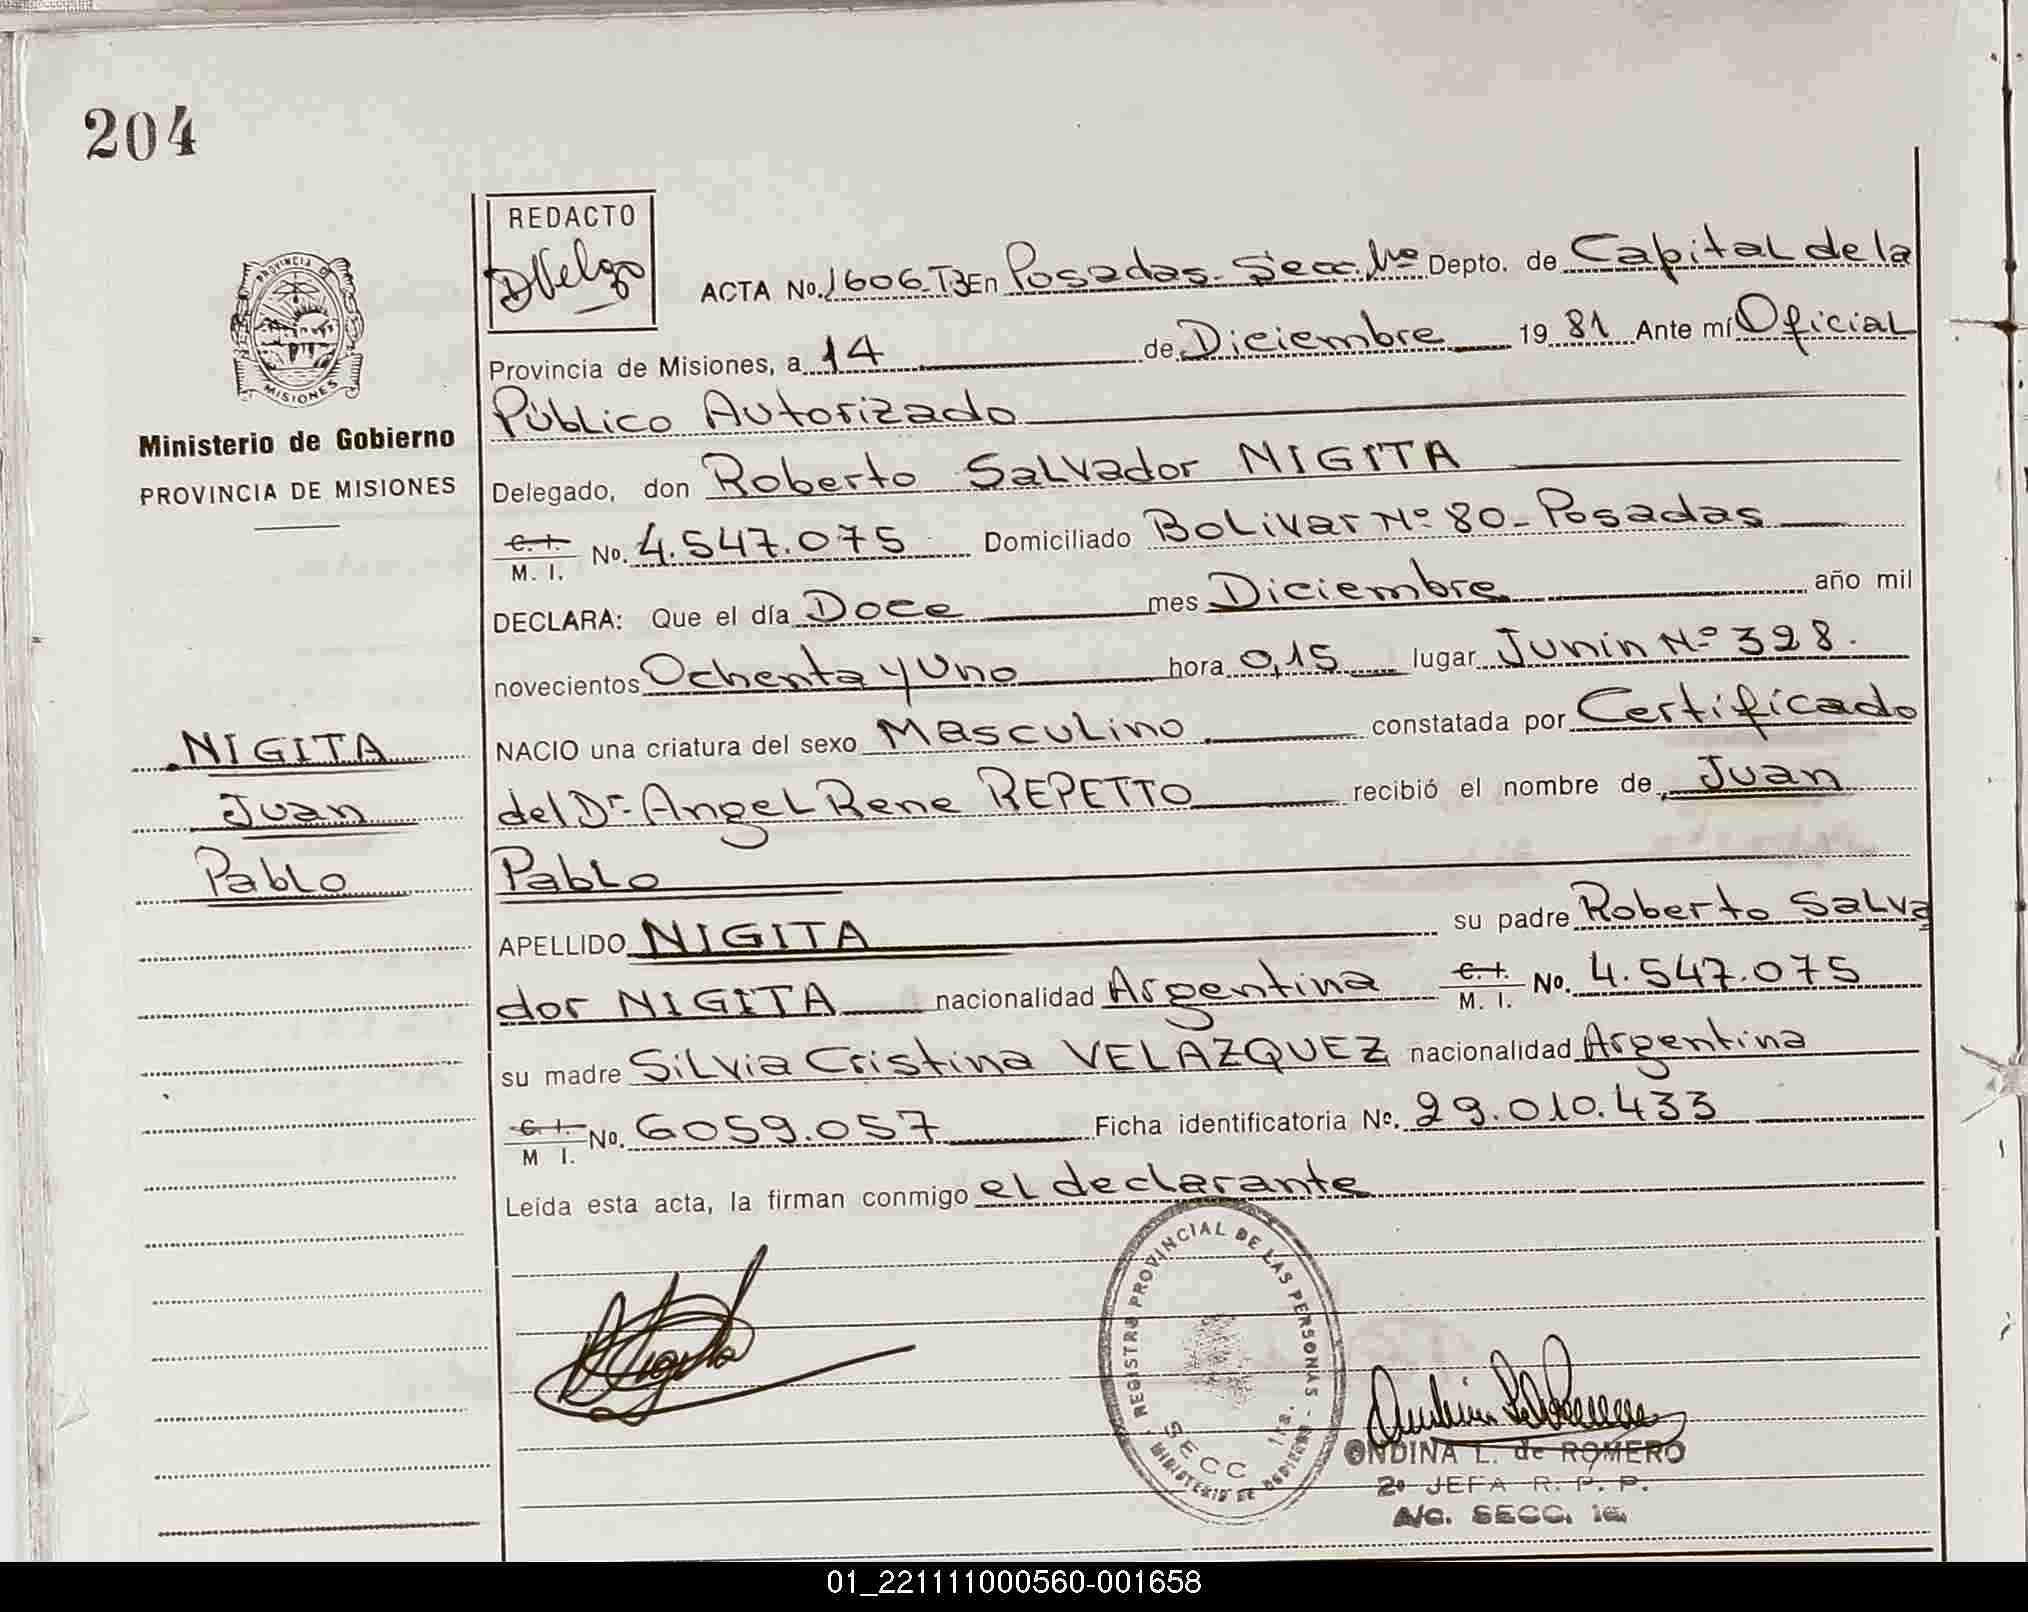 204
REDACTO
PROVINCIA DE
MISIONES
Ministerio de Gobierno
PROVINCIA DE MISIONES
ACTA No. 1606 T3 En Posadas. Secc. 1ra Depto. de Capital de la
Provincia de Misiones, a 14 de Diciembre 19 81 Ante mí Oficial
Público Autorizado
Delegado, don Roberto Salvador NIGITA
C. I.
M. I. No. 4.547.075 Domiciliado BoLivar Nº 80 - Posadas
DECLARA: Que el día Doce mes Diciembre año mil
novecientos Ochenta y Uno hora 0,15 lugar Junin Nº 328.
NACIO una criatura del sexo Masculino constatada por Certificado
del Dr. Angel Rene REPETTO recibió el nombre de Juan
Pablo
APELLIDO NIGITA su padre Roberto Salva
dor NIGITA nacionalidad Argentina C. I.
M. I. No. 4.547.075
su madre Silvia Cristina VELAZQUEZ nacionalidad Argentina
C. I.
M I. No. 6059.057 Ficha identificatoria Nº. 29.010.433
Leída esta acta, la firman conmigo el declarante
NIGITA
Juan
Pablo
REGISTRO PROVINCIAL DE LAS PERSONAS -
MINISTERIO DE GOBIERNO
SECC 1ra.
ONDINA L. de ROMERO
2º JEFA R. P. P.
A/C. SECC. 1a.
01_221111000560-001658